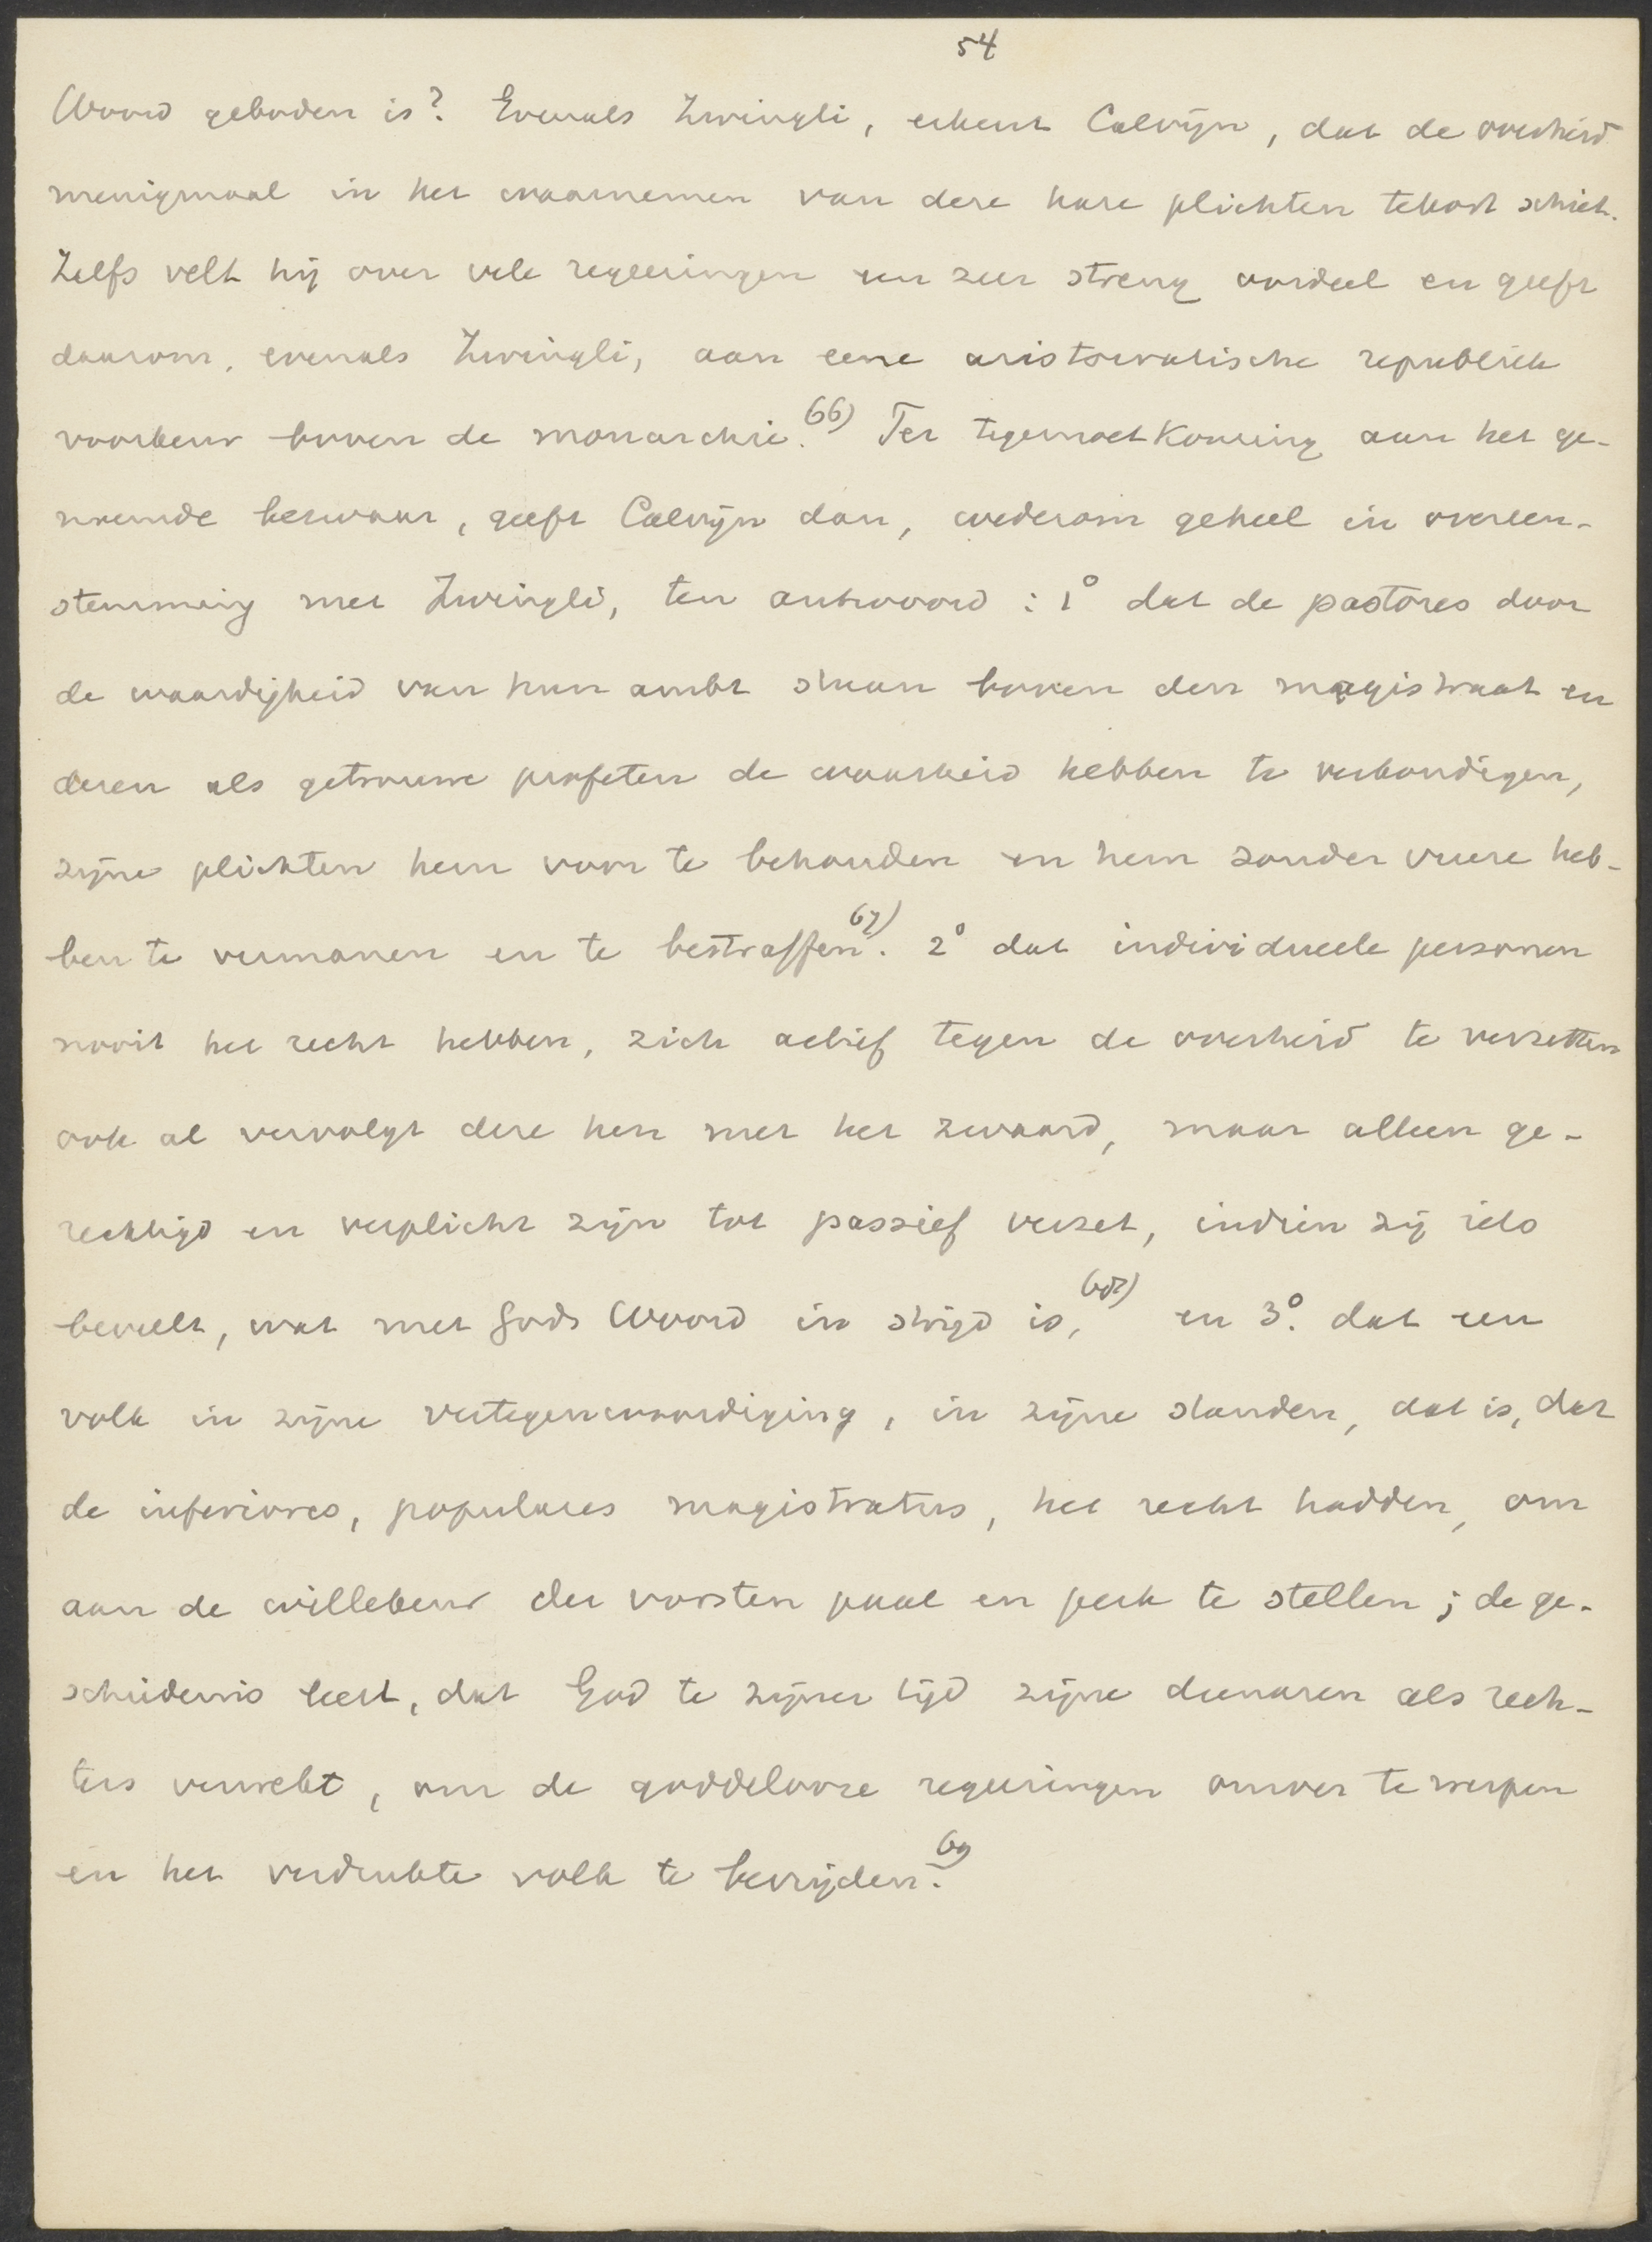 54
Woord geboden is? Evenals Zwingli, erkent Calvijn, dat de overheid
menigmaal in het waarnemen van deze hare plichten tekort schiet.
Zelfs velt hij over vele regeeringen een zeer streng oordeel en geeft
daarom, evenals Zwingli, aan eene aristocratische republiek
voorkeur boven de monarchie.66) Ter tegemoetkoming aan het ge-
noemde bezwaar, geeft Calvijn dan, wederom geheel in overeen-
stemming met Zwingli, ten antwoord: 1° dat de pastores door
de waardigheid van hun ambt staan boven den magistraat en
dezen als getrouwe profeten de waarheid hebben te verkondigen,
zijne plichten hem voor te behouden en hem zonder vreeze heb-
ben te vermanen en te bestraffen.67) 2° dat individueele personen
nooit het recht hebben, zich actief tegen de overheid te verzetten
ook al vervolgt deze hen met het zwaard, maar alleen ge-
rechtigd en verplicht zijn tot passief verzet, indien zij iets
beveelt, wat met Gods Woord in strijd is,68) en 3°. dat een
volk in zijne vertegenwoordiging, in zijne standen, dat is, dat
de inferiores, populares magistratus, het recht hadden, om
aan de willekeur der vorsten paal en perk te stellen; de ge-
schiedenis leert, dat God te zijner tijd zijne dienaren als rech-
ters verwekt, om de goddelooze regeeringen omver te werpen
en het verdrukte volk te bevrijden.69